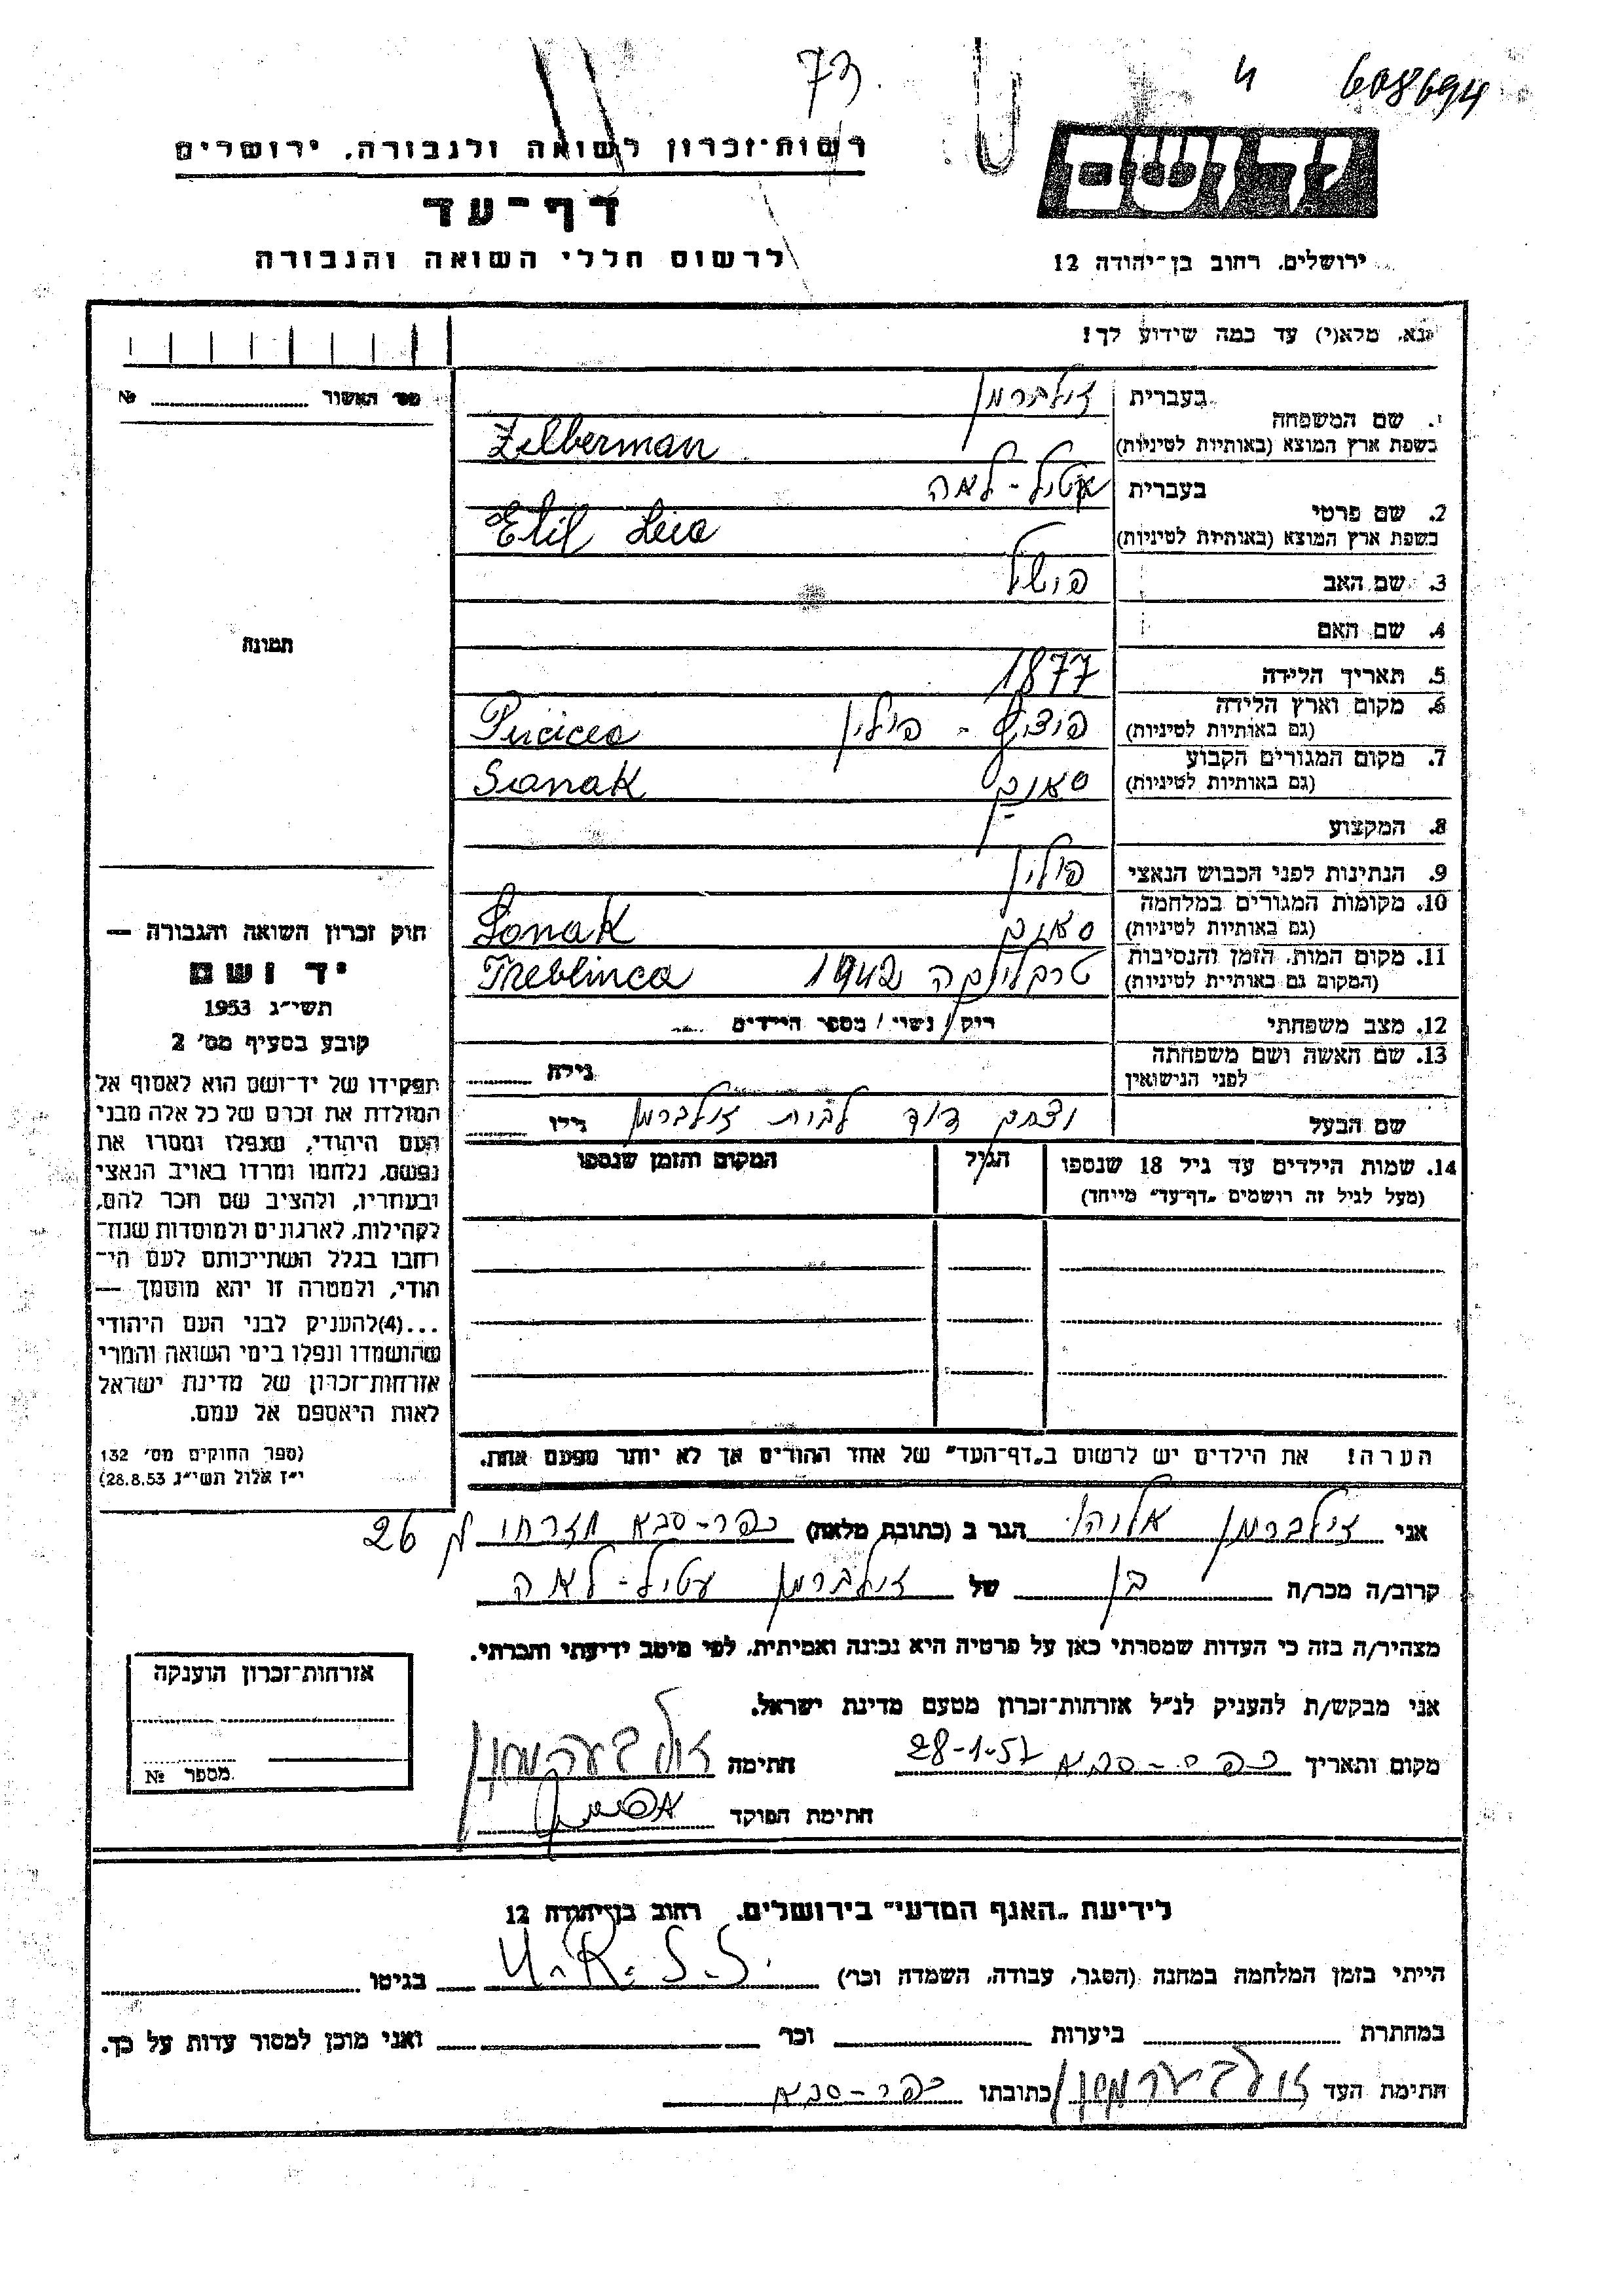 73
4
608694
רשות־זכרון לשואה ולגבורה, ירושלים
דף־עד
לרשום חללי השואה והגבורה
יד ושם
ירושלים, רחוב בן־יהודה 12
נא, מלא(י) עד כמה שידוע לך!
מס' האשור № 
תמונה
חוק זכרון השואה והגבורה —
יד ושם
תשי"ג 1953
קובע בסעיף מס' 2
תפקידו של יד־ושם הוא לאסוף אל
המולדת את זכרם של כל אלה מבני
העם היהודי, שנפלו ומסרו את
נפשם, נלחמו ומרדו באויב הנאצי
ובעוזריו, ולהציב שם וזכר להם,
לקהילות, לארגונים ולמוסדות שנח־
רבו בגלל השתייכותם לעם הי־
הודי, ולמטרה זו יהא מוסמך —
...(4)להעניק לבני העם היהודי
שהושמדו ונפלו בימי השואה והמרי
אזרחות־זכרון של מדינת ישראל
לאות היאספם אל עמם.
(ספר החוקים מס' 132
י"ז אלול תשי"ג 28.8.53)
1. שם המשפחה
בעברית זילברמן
בשפת ארץ המוצא (באותיות לטיניות) Zilberman
2. שם פרטי
בעברית אטיל-לאה
בשפת ארץ המוצא (באותיות לטיניות) Etil Leia
3. שם האב פישל
4. שם האם
5. תאריך הלידה 1877
6. מקום וארץ הלידה
(גם באותיות לטיניות) - פולין
7. מקום המגורים הקבוע
(גם באותיות לטיניות) סאנוק Sanok
8. המקצוע
9. הנתינות לפני הכבוש הנאצי פולין
10. מקומות המגורים במלחמה
(גם באותיות לטיניות) סאנוק Sanok
11. מקום המות, הזמן והנסיבות
(המקום גם באותיות לטיניות) טרבלינקה 1942 Treblinca
12. מצב משפחתי רוק/ נשוי / מספר הילדים
13. שם האשה ושם משפחתה
לפני הנישואין גילה
שם הבעל דוד לבית זילברמן גילו
14. שמות הילדים עד גיל 18 שנספו
(מעל לגיל זה רושמים „דף־עד" מייחד)
הגיל
המקום והזמן שנספו
הערה! את הילדים יש לרשום ב„דף־העד" של אחד ההורים אך לא יותר מפעם אחת.
אני זילברמן אליהו הגר ב (כתובת מלאה) כפר-סבא מזרחי 26
קרוב/ה מכר/ה בן של זילברמן עטיל-לאה
מצהיר/ה בזה כי העדות שמסרתי כאן על פרטיה היא נכונה ואמיתית, לפי מיטב ידיעתי והכרתי.
אני מבקש/ת להעניק לנ"ל אזרחות־זכרון מטעם מדינת ישראל.
מקום ותאריך כפר-סבא 28-1-57 חתימה זילבערמאן
חתימת הפוקד
אזרחות־זכרון הוענקה
מספר №
לידיעת „האגף המדעי" בירושלים, רחוב בן־יהודה 12
הייתי בזמן המלחמה במחנה (הסגר, עבודה, השמדה וכו') U.R.S.S. בגיטו
במחתרת ביערות וכו' ואני מוכן למסור עדות על כך.
חתימת העד זילבערמאן כתובתו כפר-סבא